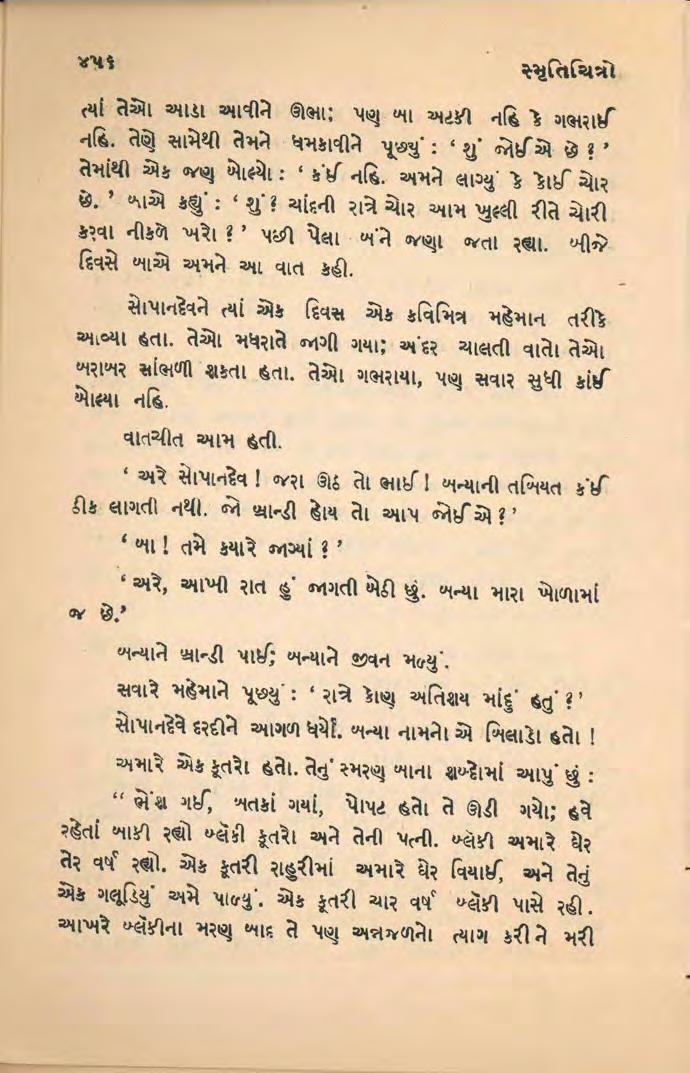 ૪૫૬
સ્મૃતિચિત્રો
ત્યાં તેઓ આડા આવીને ઊભા; પણ બા અટકી નહિ કે ગભરાઈ
નહિ. તેણે સામેથી તેમને ધમકાવીને પૂછ્યું : ‘ શું જોઈએ છે ? ’
તેમાંથી એક જણ બોલ્યો : ‘ કંઈ નહિ. અમને લાગ્યું કે કોઈ ચોર
છે. ’ બાએ કહ્યું : ‘ શું ? ચાંદની રાત્રે ચોર આમ ખુલ્લી રીતે ચોરી
કરવા નીકળે ખરો ? ’ પછી પેલા બંને જણા જતા રહ્યા. બીજે
દિવસે બાએ અમને આ વાત કહી.
સોપાનદેવને ત્યાં એક દિવસ એક કવિમિત્ર મહેમાન તરીકે
આવ્યા હતા. તેઓ મધરાતે જાગી ગયા; અંદર ચાલતી વાતો તેઓ
બરાબર સાંભળી શકતા હતા. તેઓ ગભરાયા, પણ સવાર સુધી કાંઈ
બોલ્યા નહિ.
વાતચીત આમ હતી.
‘ અરે સોપાનદેવ ! જરા ઊઠ તો ભાઈ ! બન્યાની તબિયત કંઈ
ઠીક લાગતી નથી. જો બ્રાન્ડી હોય તો આપ જોઈએ ? ’
‘ બા ! તમે ક્યારે જાગ્યાં ? ’
‘ અરે, આખી રાત હું જાગતી બેઠી છું. બન્યા મારા ખોળામાં
જ છે.’
બન્યાને બ્રાન્ડી પાઈ; બન્યાને જીવન મળ્યું.
સવારે મહેમાને પૂછ્યું : ‘ રાત્રે કોણ અતિશય માંદું હતું ? ’
સોપાનદેવે દરદીને આગળ ધર્યો. બન્યા નામનો એ બિલાડો હતો !
અમારે એક કૂતરો હતો. તેનું સ્મરણ બાના શબ્દોમાં આપું છું :
“ ભેંશ ગઈ, બતકાં ગયાં, પોપટ હતો તે ઊડી ગયો; હવે
રહેતાં બાકી રહ્યો બ્લૅકી કૂતરો અને તેની પત્ની. બ્લૅકી અમારે ઘેર
તેર વર્ષ રહ્યો. એક કૂતરી રાહુરીમાં અમારે ઘેર વિયાઈ, અને તેનું
એક ગલૂડિયું અમે પાળ્યું. એક કૂતરી ચાર વર્ષ બ્લૅકી પાસે રહી.
આખરે બ્લૅકીના મરણ બાદ તે પણ અન્નજળનો ત્યાગ કરીને મરી